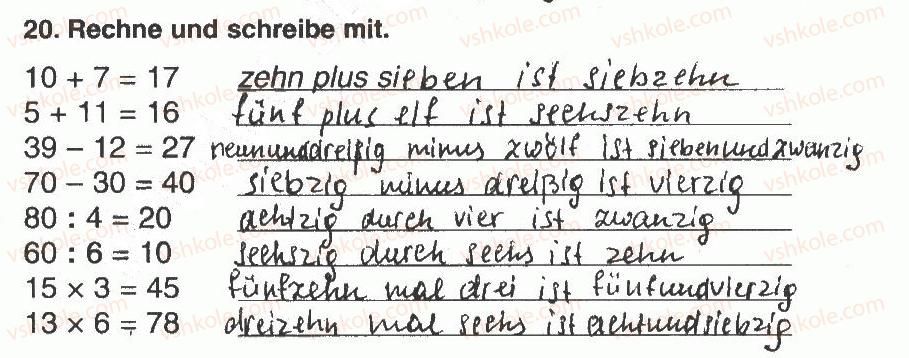 20. Rechne und schreibe mit.
10 + 7 = 17 zehn plus sieben ist siebzehn
5 + 11 = 16 fünf plus elf ist sechszehn
39 – 12 = 27 neununddreißig minus zwölf ist siebenundzwanzig
70 – 30 = 40 siebzig minus dreißig ist vierzig
80 : 4 = 20 achtzig durch vier ist zwanzig
60 : 6 = 10 sechszig durch sechs ist zehn
15 × 3 = 45 fünfzehn mal drei ist fünfundvierzig
13 × 6 = 78 dreizehn mal sechs ist achtundsiebzig